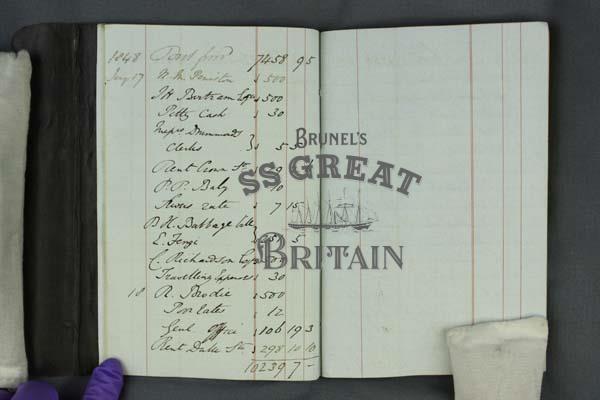 1848 Bot forwd 7458 9 5
Jany 17 500
J H Bertram Esqr " 500
Petty Cash " 30
Messrs Drummonds
Clerks } " 5 5
Rent Crown St
P. P. Baly 10
Sewers rate " 7 15
B. H. Babbage
E. Fengi 5
C. Richardson Esqr
Travelling Expenses " 30
18 R. Brodie " 500
Poor Rates " 12
Genl Office " 106 19 3
Rent Duke St " 298 10 10
10239 7 -
BRUNEL'S
SS GREAT
BRITAIN